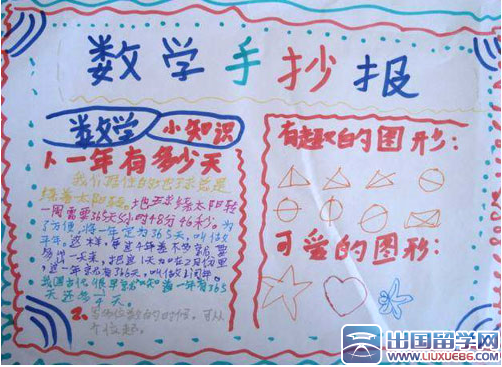 数学手抄报
数学 小知识
1.一年有多少天
我们居住的地球总是
绕着太阳转。地球绕太阳转
一周需要365天5小时48分46秒。为
了方便，将一年定为365天，叫做
平年。这样，每过4年差不多就要
多出一天来，把这1天加在2月份里，
这一年就有366天，叫做闰年。
我国古代很早就知道一年有365
天还多一天。
2.
个位起。
有趣的图形：
可爱的图形：
出国留学网
WWW.LIUXUE86.COM